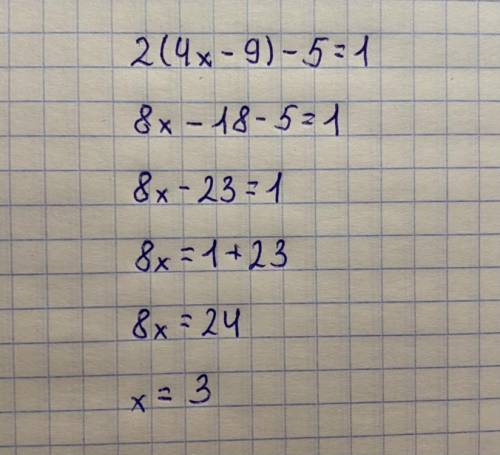 2(4x - 9) - 5 = 1
8x - 18 - 5 = 1
8x - 23 = 1
8x = 1 + 23
8x = 24
x = 3